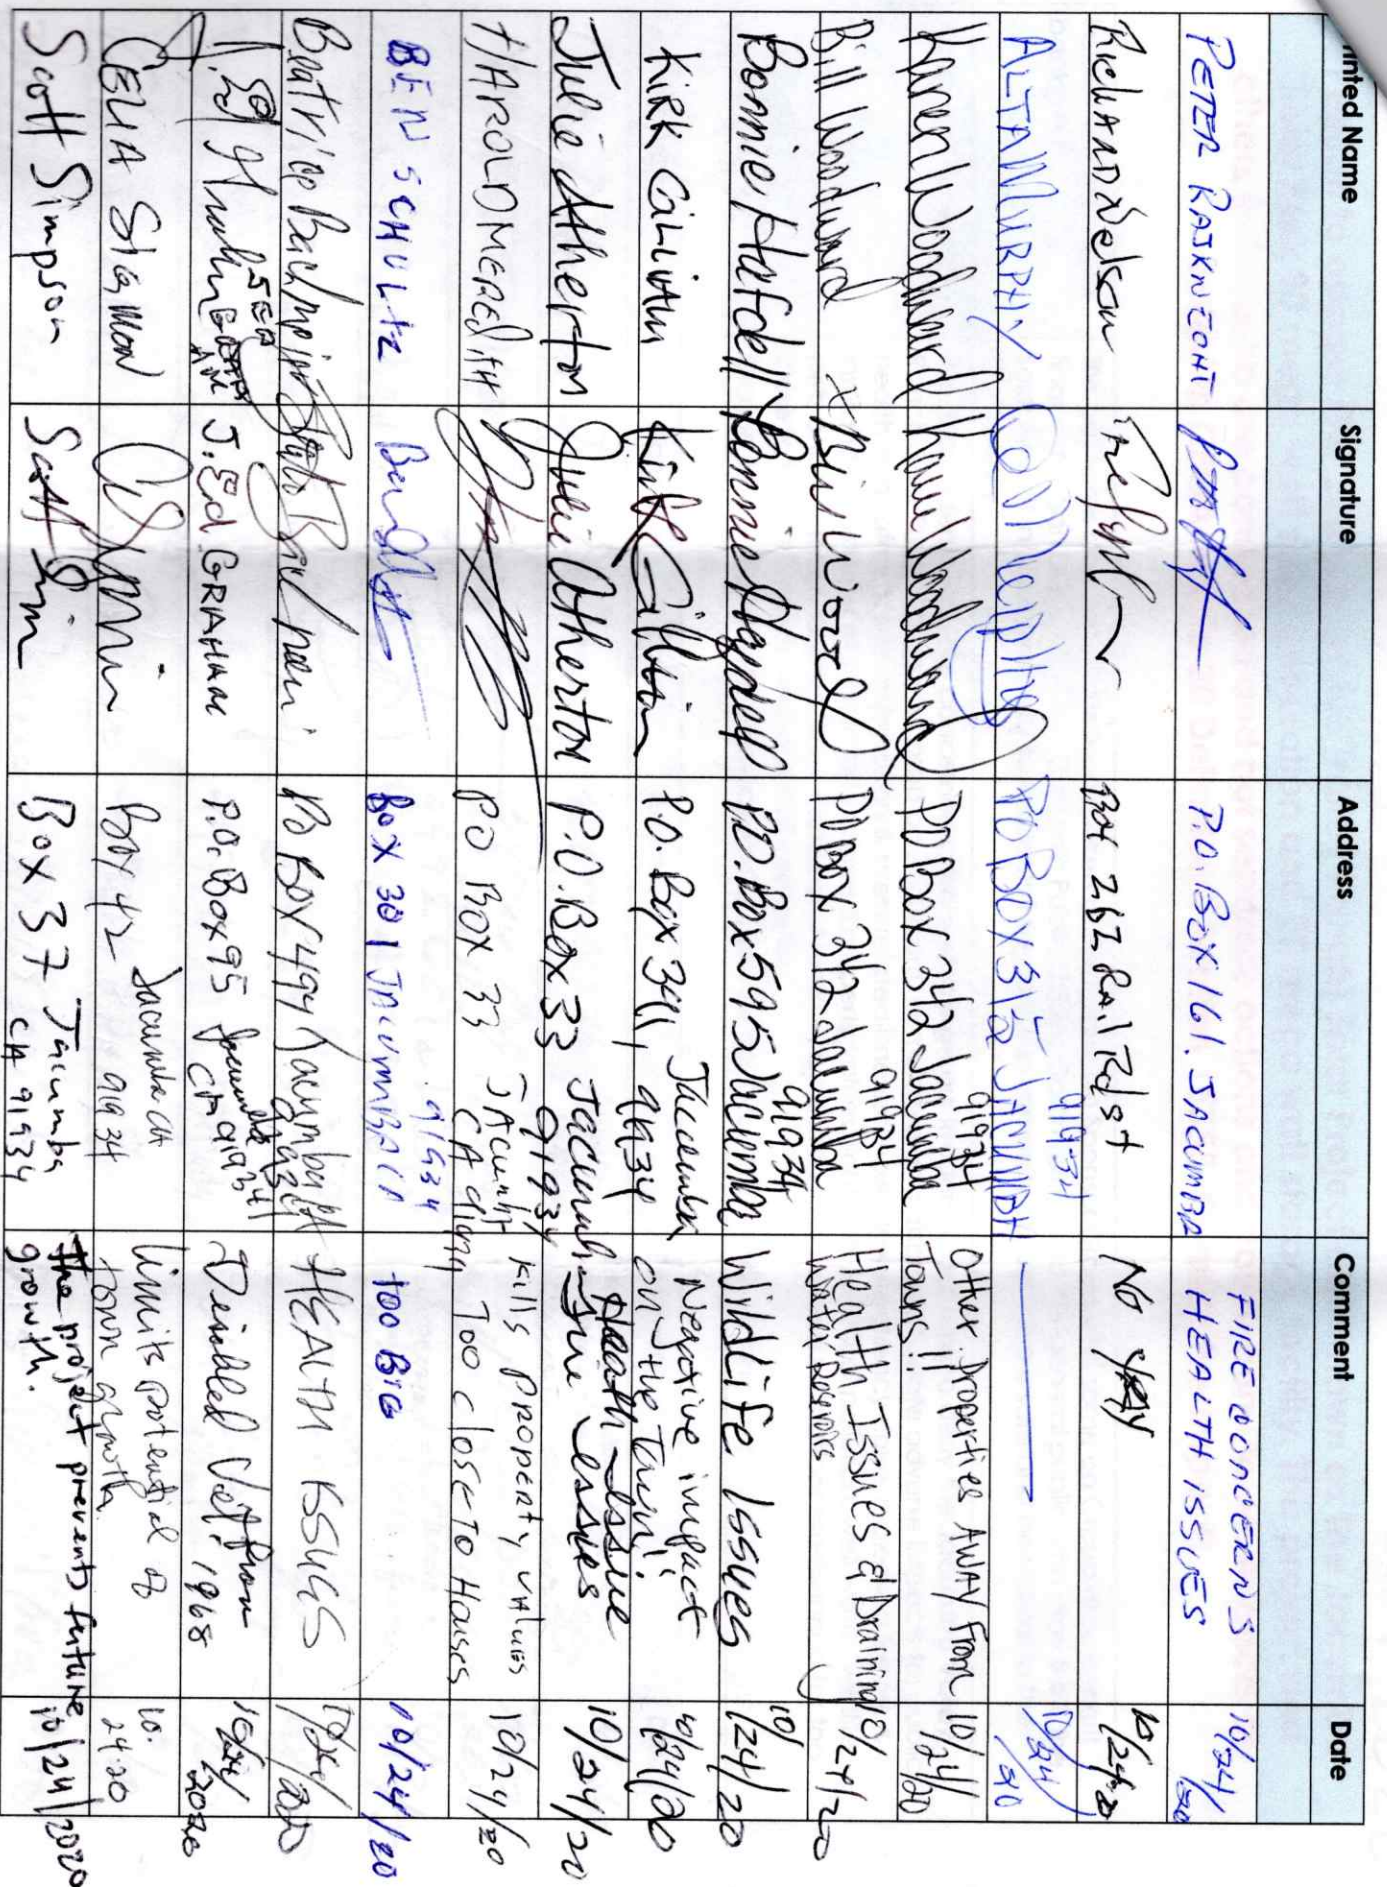 inted Name Signature Address Comment Date
PETER P.O. BOX 161. JACUMBA FIRE CONCERNS HEALTH ISSUES 10/24/
RICHARD Nelson Box 262 RailRd st No 10/24/20
ALTA MURPHY PO BOX 315 JACUMBA 91934 10/24/20
Karen Woodward Karen Woodward PO Box 342 Jacumba 91934 Other Properties AWAY From Towns!! 10/24/20
Bill Woodward x Bill PO Box 342 Jacumba 91934 Health Issues & Draining Water 10/24/20
Bonnie Hafdell Bonnie Hafdell P.O. Box 595 Jacumba 91934 WildLife Issues 10/24/20
KIRK GILLIAM Kirk Gilliam P.O. Box 341, Jacumba 91934 Negative impact on the Town! 10/24/20
Julie Atherton Julie Atherton P.O. Box 33 Jacumba 91934 Health Issue 10/24/20
HAROLD MEREDITH PO BOX 33 JACUMBA CA 91934 Kills Property Values Too close to Houses 10/24/20
BEN SCHULTZ Ben BOX 301 JACUMBA CA 91934 too Big 10/24/20
Beatrice PO BOX 494 Jacumba CA 91934 HEALTH ISSUES
J. Ed GRAHAM P.O. Box 95 Jacumba CA 91934 Disabled Vet. from 1968 10/24/2020
CELIA Box 42 Jacumba CA 91934 Limits potential of town growth. 10.24.20
Scott Simpson Scott Box 37 Jacumba CA 91934 The project prevents future growth. 10/24/2020